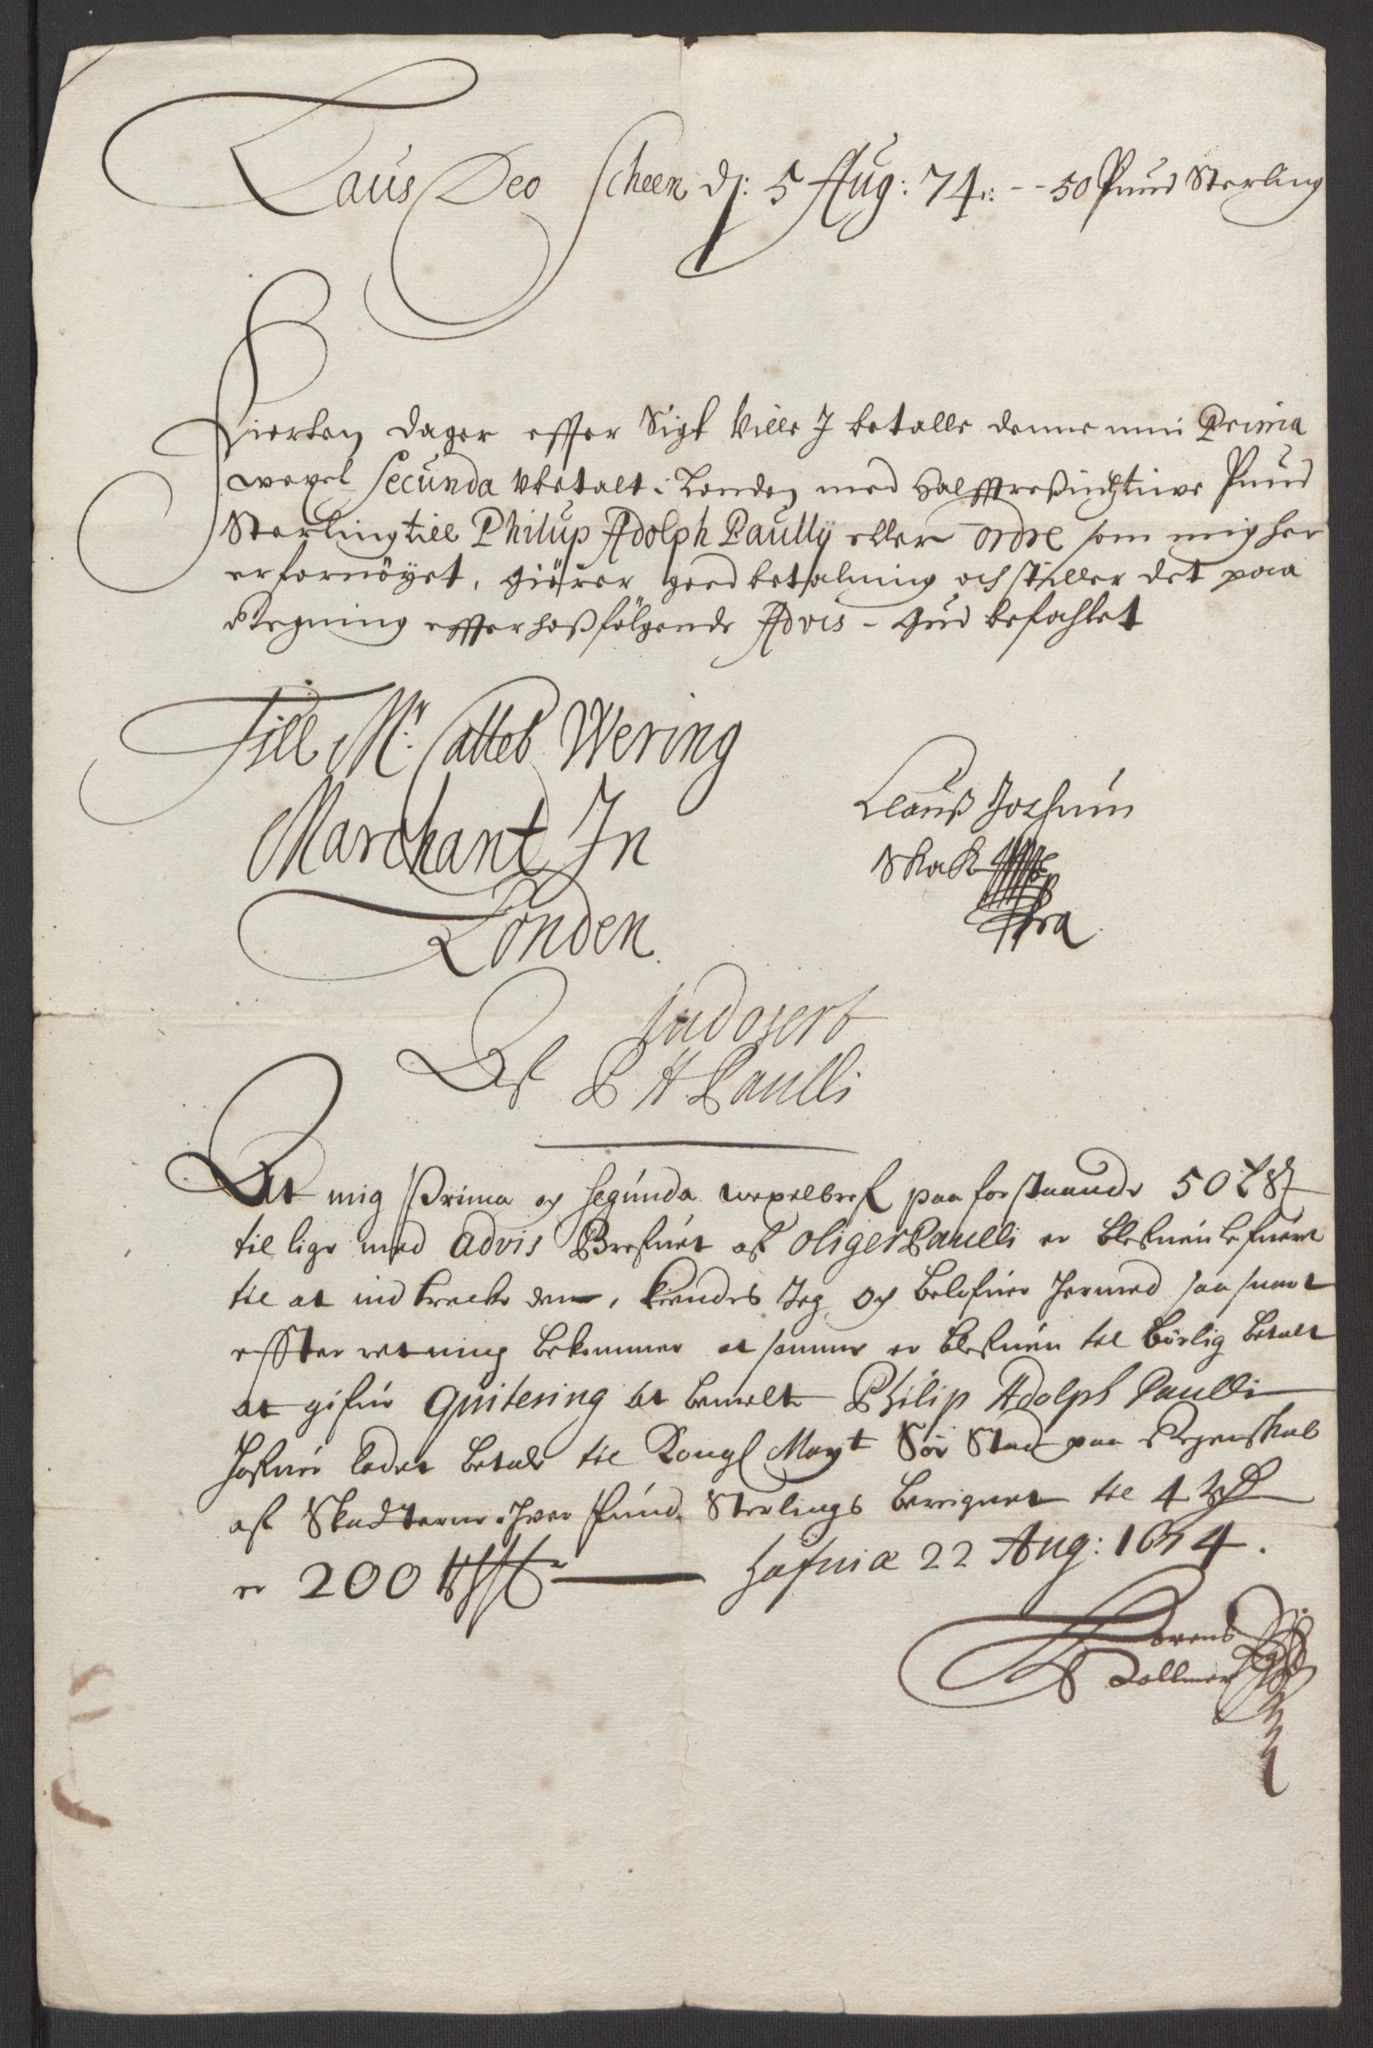 Laus Deo Scheen dj: 5 Aug: 74: -- 50 Pund Sterling
Fiorten dager effter Sigt Ville J betalle denne min Prima
wexel Secunda Vbetalt i Londen med Halfftresindztiuve Pund
Sterling till Philup Adolph Paully eller ordre som mig her
er fornöyet, giörer goed betalning och stiller det paa
Regning effter hoßfölgende Advis - Gud befohlet
Till Mr. Calleb Wering
Marchant In
Londen
Clauß Jochim
Skak
Indosert
Af P A Paulli
At mig Prima og segunda wexelbref paa forstaaende 50 L St
til lige med Advis Brefuet af Oliger Paulli er blefuen lefueret
til at indtrecke dem, kiendes Jeg og Belofuer hermed saa snart
effter retning bekommer at samme er blefuen til børlig betalt
at gifue Quitering at bemelte Philip Adolph Paulli
hafuer ladet betale til Kongl Mayt Søe Stad paa Regenskab
af Skatterne, hver Pund Sterlings beregnet til 4 Rd
er 200 Rd — Hafniæ 22 Aug: 1674.